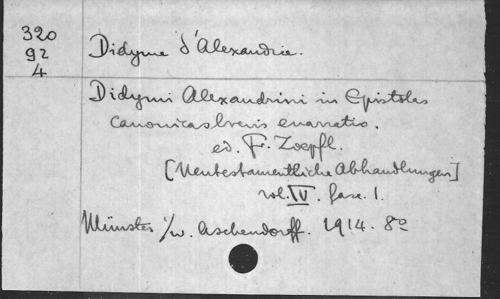 320
92
4
Didyme d'Alexandrie.
Didymi Alexandrini in Epistolas
canonicas brevis enarratio.
ed. F. Zoepfl.
[Neutestamentliche Abhandlungen]
vol. IV. fasc. 1.
Münster i/w. Aschendorff. 1914. 8º